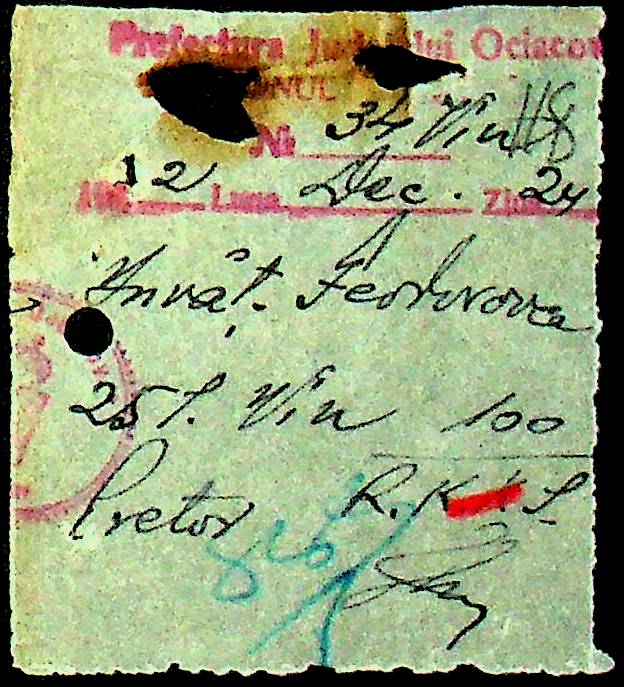 Prefectura Județului Ociacov
Nr. 34 Vin
12 Luna Dec. Ziua 24
Învăț. Feodorovca
25 l. Vin 100
Pretor R.K.S.